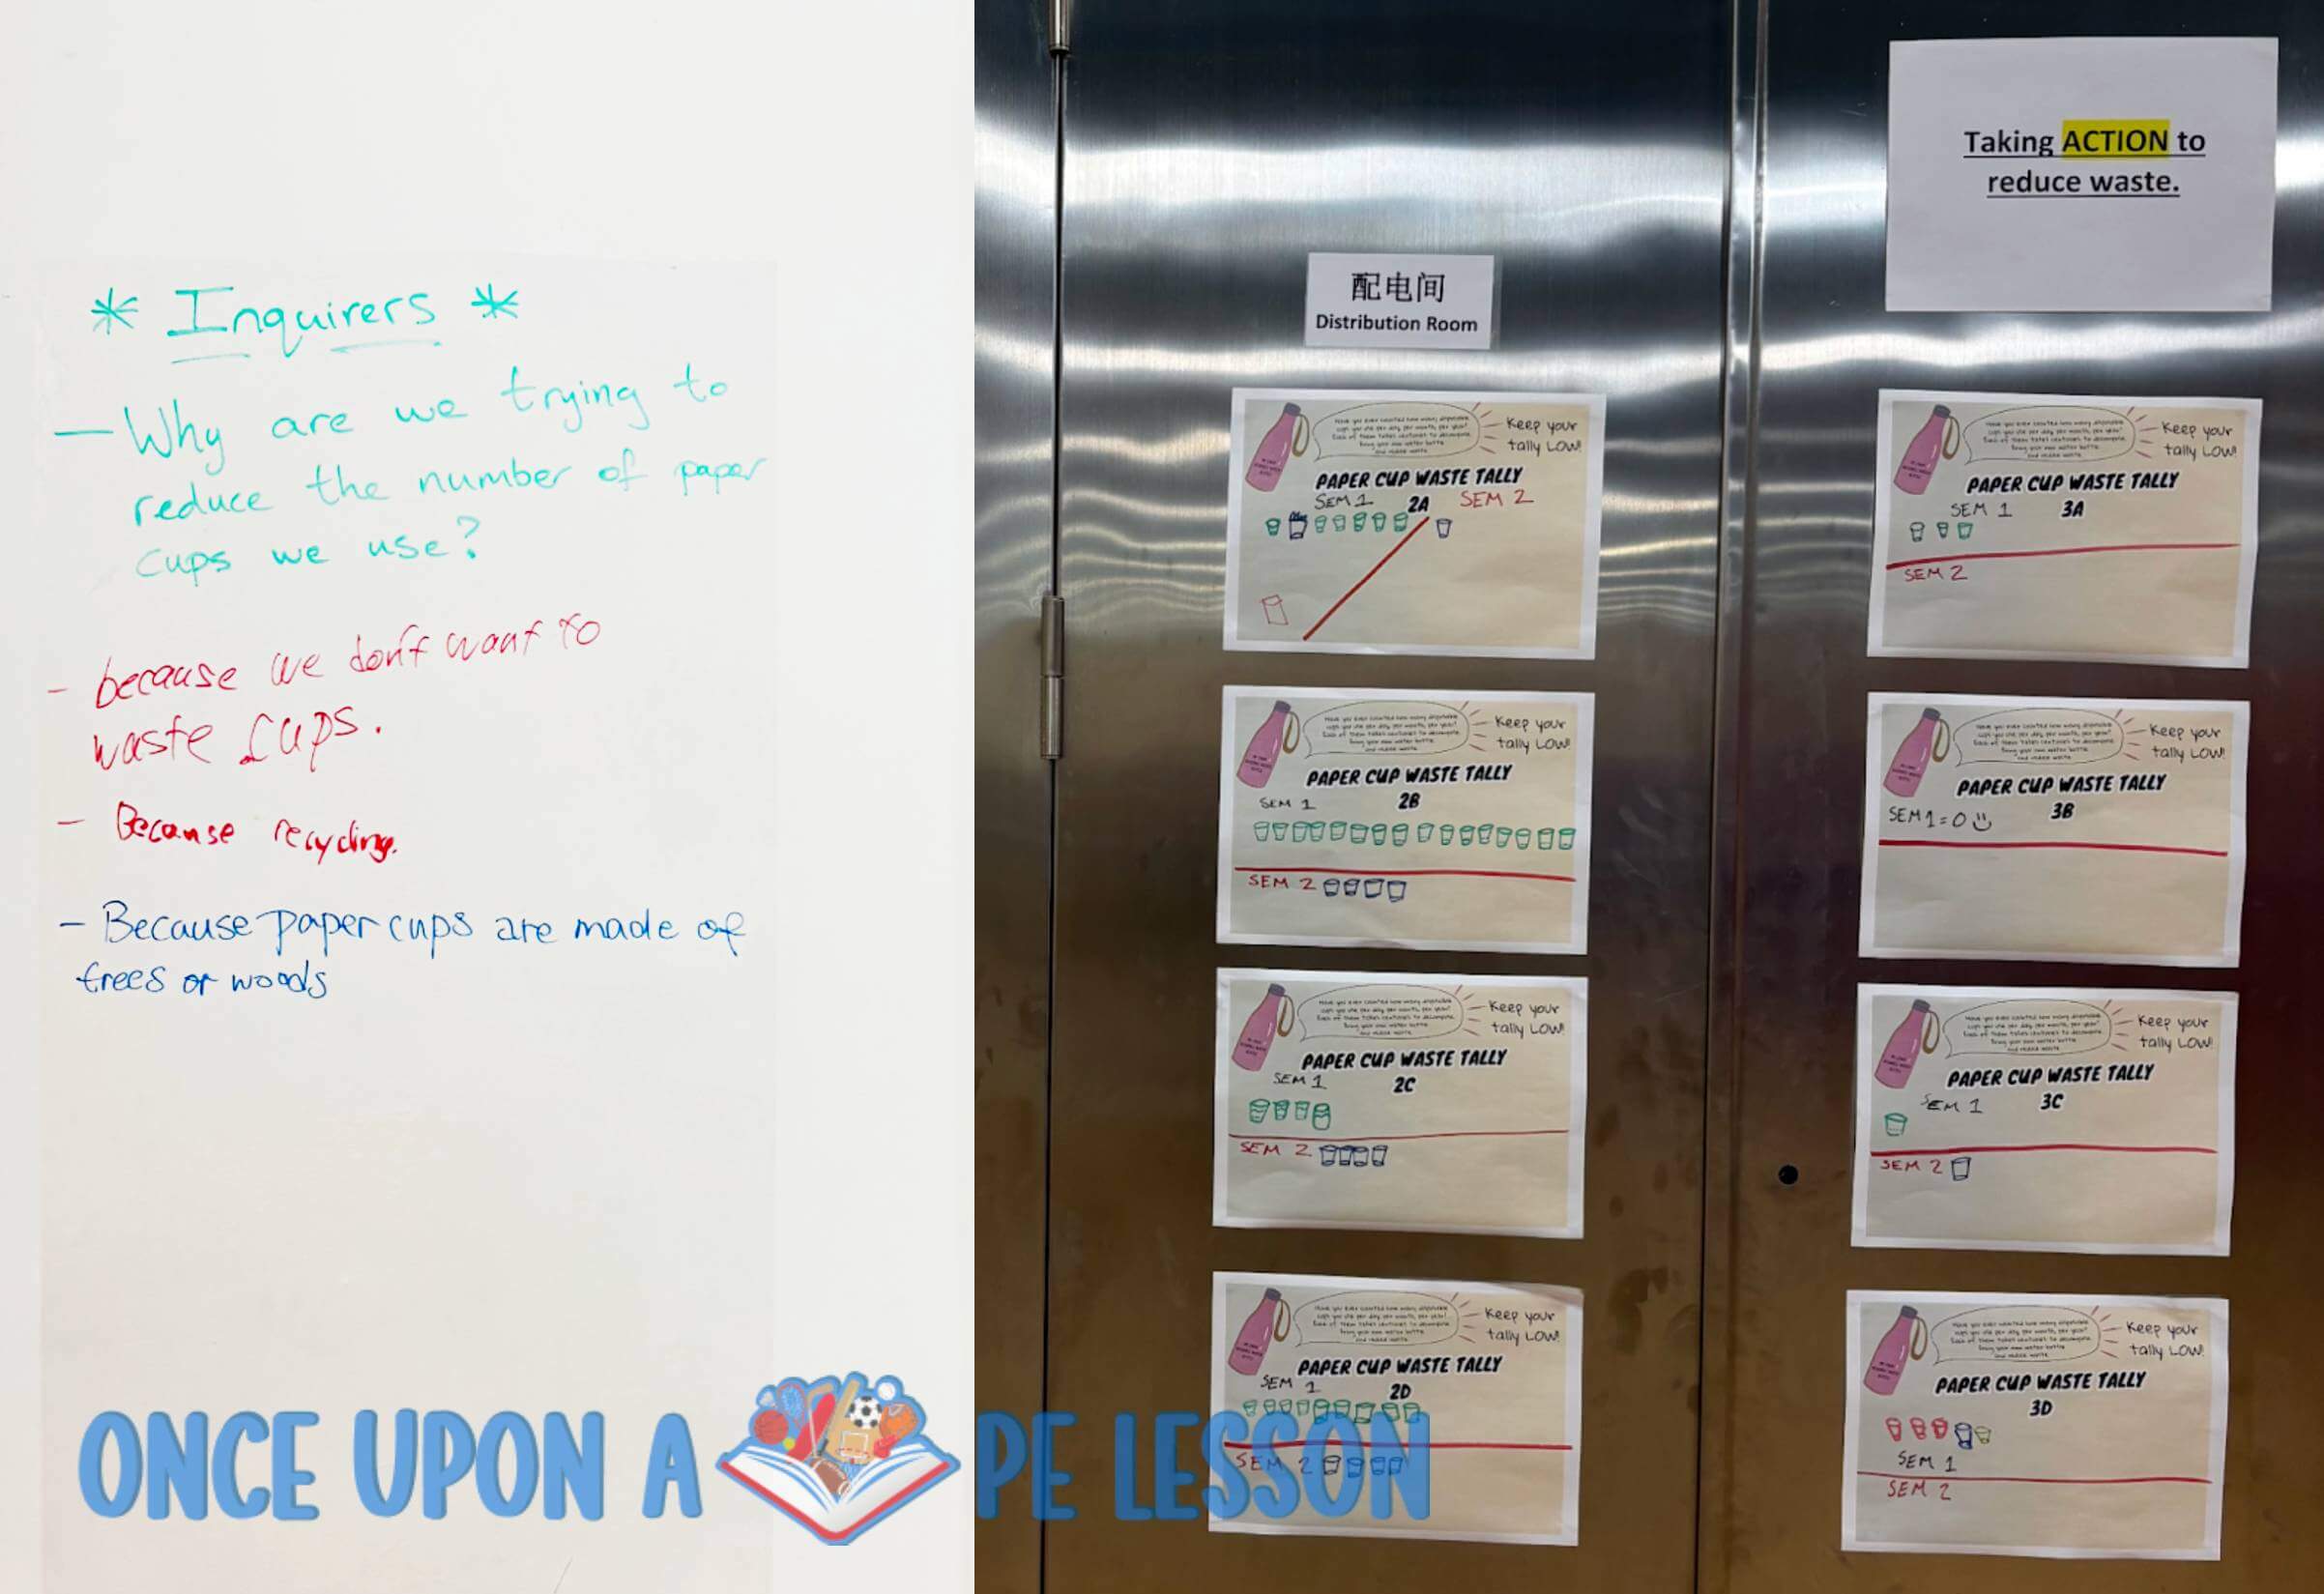 * Inquirers *
— Why are we trying to
reduce the number of paper
cups we use?
- because we don't want to
waste cups.
- Because recycling.
- Because paper cups are made of
trees or woods
Taking ACTION to
reduce waste.
配电间
Distribution Room
Keep your
tally LOW!
PAPER CUP WASTE TALLY
SEM 1 2A SEM 2
Keep your
tally LOW!
PAPER CUP WASTE TALLY
SEM 1 2B
SEM 2
Keep your
tally LOW!
PAPER CUP WASTE TALLY
SEM 1 2C
SEM 2
Keep your
tally LOW!
PAPER CUP WASTE TALLY
SEM 1 2D
SEM 2
Keep your
tally LOW!
PAPER CUP WASTE TALLY
SEM 1 3A
SEM 2
Keep your
tally LOW!
PAPER CUP WASTE TALLY
3B
SEM 1 = 0
Keep your
tally LOW!
PAPER CUP WASTE TALLY
SEM 1 3C
SEM 2
Keep your
tally LOW!
PAPER CUP WASTE TALLY
3D
SEM 1
SEM 2
ONCE UPON A PE LESSON